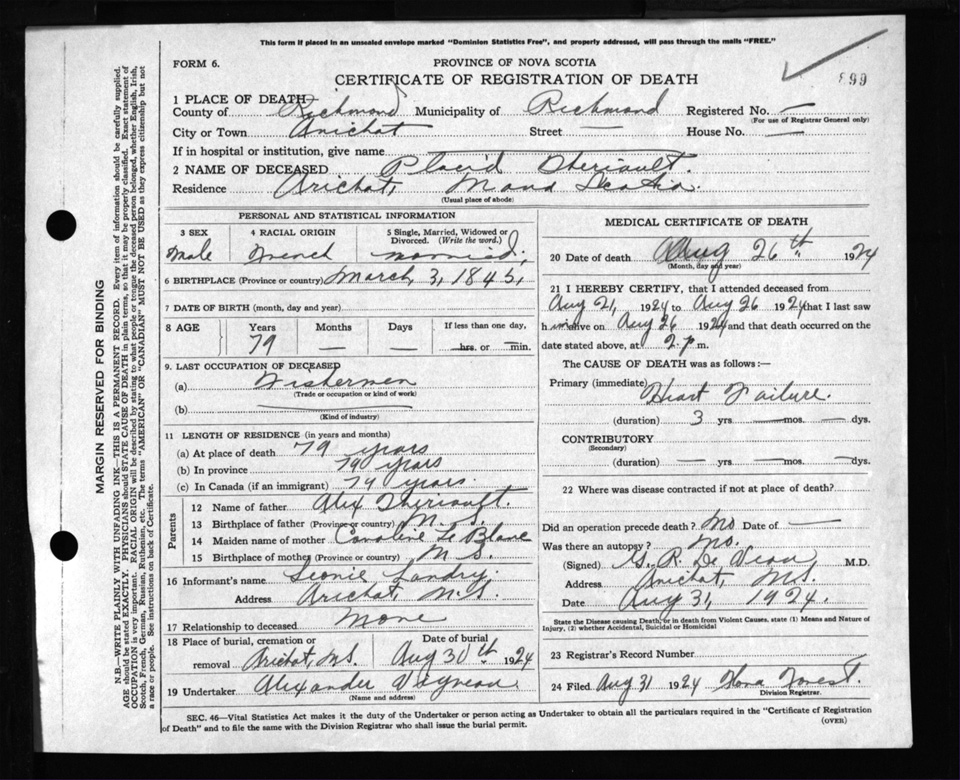 This form if placed in an unsealed envelope marked "Dominion Statistics Free", and properly addressed, will pass through the mails "FREE."
FORM 6.
PROVINCE OF NOVA SCOTIA
CERTIFICATE OF REGISTRATION OF DEATH
899
1 PLACE OF DEATH
County of Richmond Municipality of Richmond Registered No. —
(For use of Registrar General only)
City or Town Arichat Street — House No. —
If in hospital or institution, give name
2 NAME OF DECEASED Placid Theriault.
Residence Arichat, Nova Scotia.
(Usual place of abode)
PERSONAL AND STATISTICAL INFORMATION
3 SEX 4 RACIAL ORIGIN 5 Single, Married, Widowed or Divorced. (Write the word.)
Male French married,
6 BIRTHPLACE (Province or country) March, 3, 1845,
7 DATE OF BIRTH (month, day and year)
8 AGE Years Months Days If less than one day,
79 — hrs. or min.
9. LAST OCCUPATION OF DECEASED
(a) Fishermen
(Trade or occupation or kind of work)
(b)
(Kind of industry)
11 LENGTH OF RESIDENCE (in years and months)
(a) At place of death 79 years
(b) In province 79 years
(c) In Canada (if an immigrant) 79 years.
Parents
12 Name of father Alex Theriault.
13 Birthplace of father (Province or country) N.S.
14 Maiden name of mother Caroline Le Blanc
15 Birthplace of mother (Province or country) N.S.
16 Informant's name Leonie Landry,
Address Arichat, N.S.
17 Relationship to deceased None
18 Place of burial, cremation or removal Arichat, N.S.
Date of burial
Aug 30th 1924
19 Undertaker Alexander
(Name and address)
MEDICAL CERTIFICATE OF DEATH
20 Date of death Aug 26th 1924
(Month, day and year)
21 I HEREBY CERTIFY, that I attended deceased from
Aug 21, 1924 to Aug 26 1924 that I last saw
him alive on Aug 26 1924 and that death occurred on the
date stated above, at 2 p.m.
The CAUSE OF DEATH was as follows:—
Primary (immediate) Heart Failure.
(duration) 3 yrs mos. dys.
CONTRIBUTORY
(Secondary)
(duration) yrs. mos. dys.
22 Where was disease contracted if not at place of death?
Did an operation precede death? No Date of —
Was there an autopsy? No.
(Signed) De Veau M.D.
Address Arichat, N.S.
Date Aug 31, 1924.
State the Disease causing Death, or in death from Violent Causes, state (1) Means and Nature of
Injury, (2) whether Accidental, Suicidal or Homicidal
23 Registrar's Record Number
24 Filed Aug 31 1924 Forest.
Division Registrar.
SEC. 46—Vital Statistics Act makes it the duty of the Undertaker or person acting as Undertaker to obtain all the particulars required in the "Certificate of Registration
of Death" and to file the same with the Division Registrar who shall issue the burial permit.
(OVER)
MARGIN RESERVED FOR BINDING
N.B.—WRITE PLAINLY WITH UNFADING INK—THIS IS A PERMANENT RECORD. Every item of information should be carefully supplied.
AGE should be stated EXACTLY. PHYSICIANS should STATE CAUSE OF DEATH in plain terms, so that it may be properly classified. Exact statement of
OCCUPATION is very important. RACIAL ORIGIN will be described by stating to what people or tongue the deceased person belonged, whether English, Irish,
Scotch, French, German, Russian, Ruthenian, etc. The terms "AMERICAN" OR "CANADIAN" MUST NOT BE USED as they express citizenship but not
a race or people. See instructions on back of Certificate.